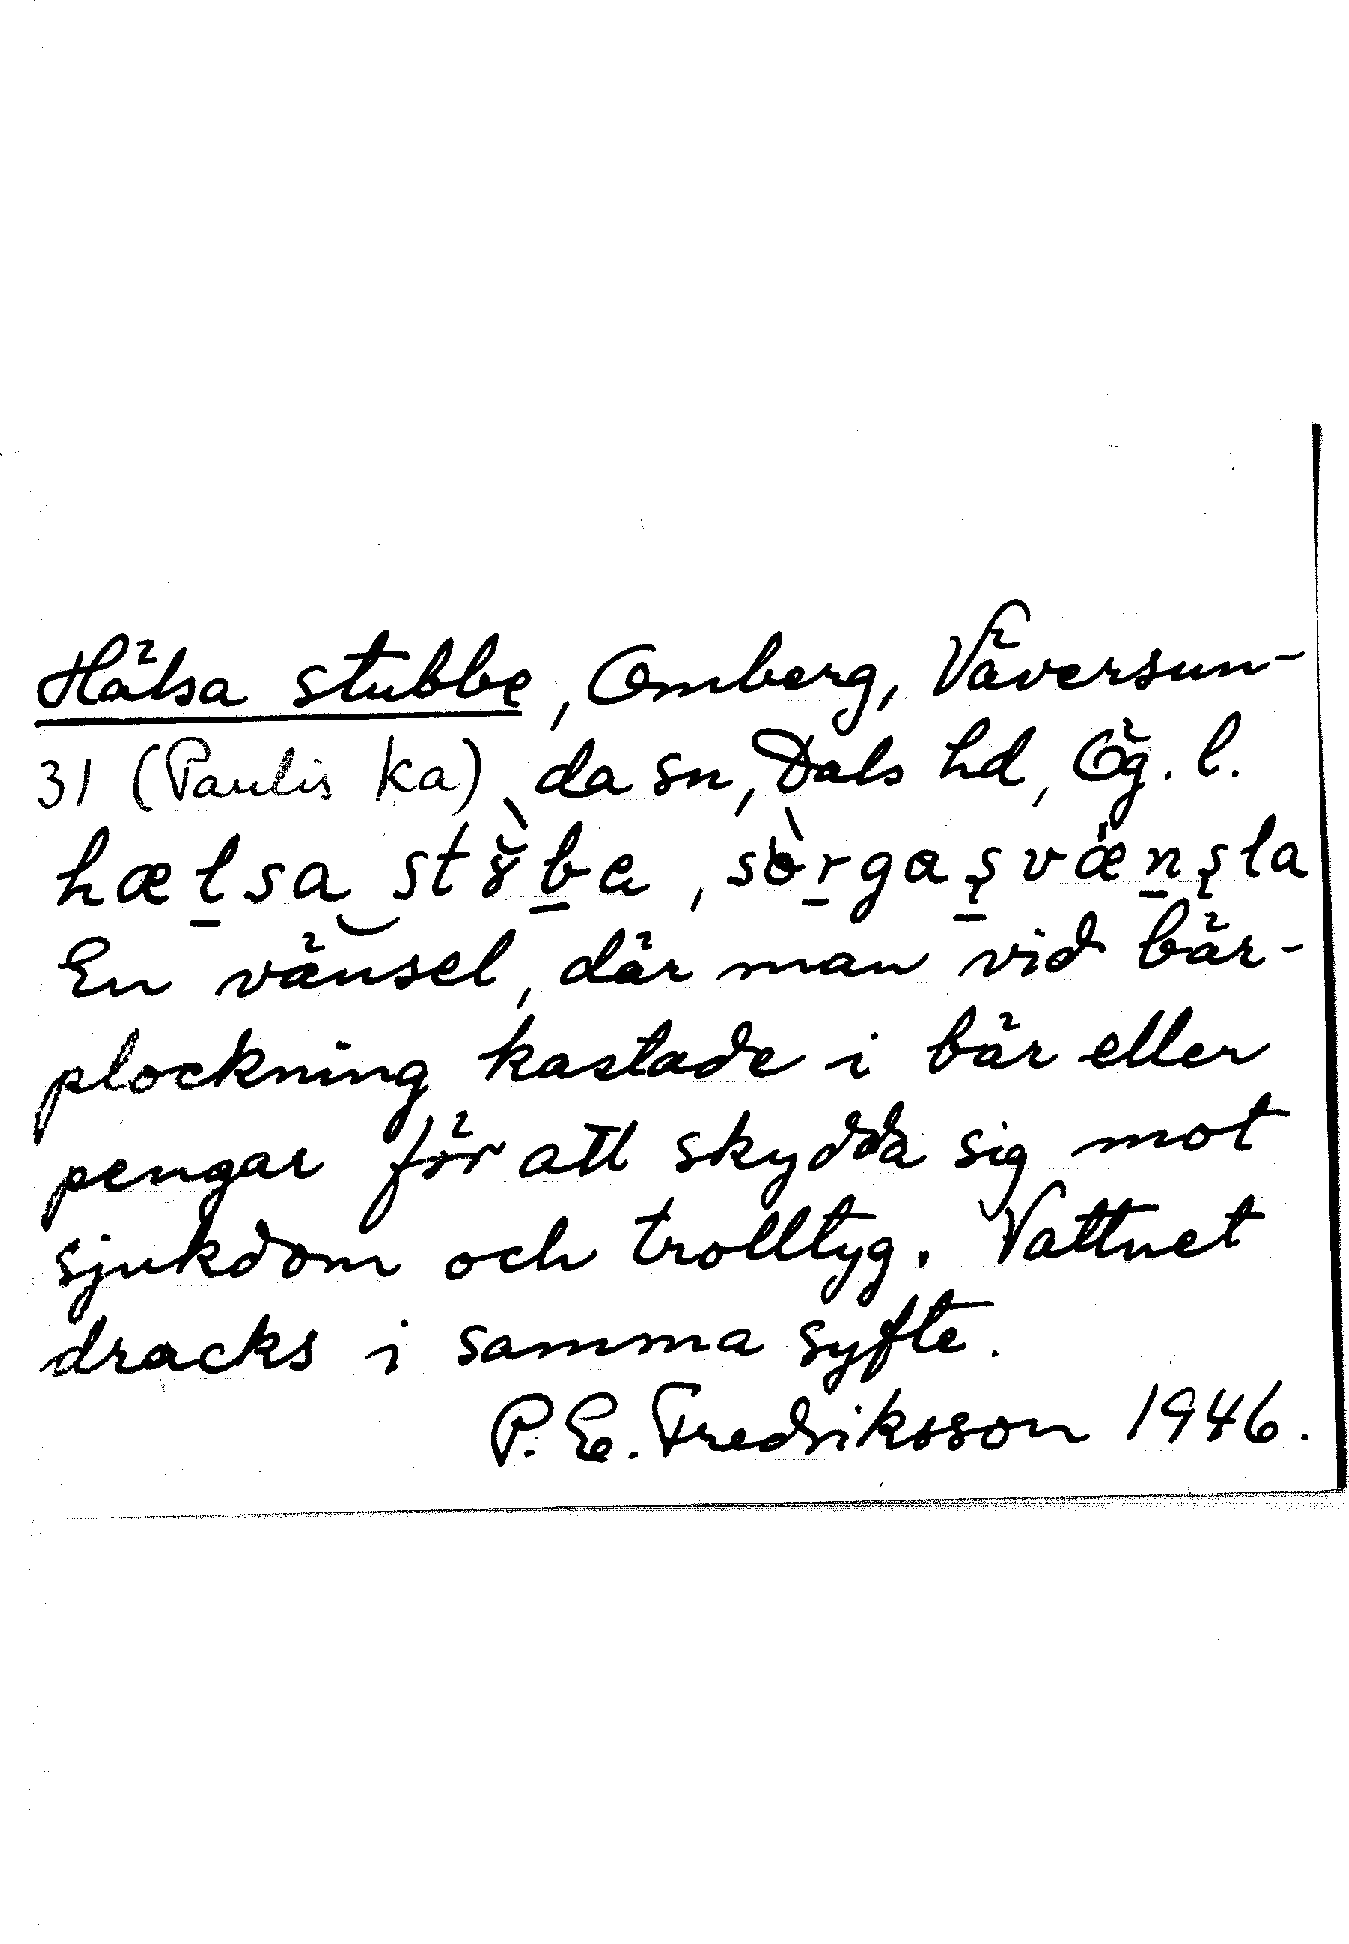 Hälsa stubbe, Omberg, Väversun-
31 (Paulis ka) da sn, Dals hd, Ög. l.
hælsa stɤ̀bɐ, sòrgaşvænşla
En vänsel, där man vid bär-
plockning kastade i bär eller
pengar för att skydda sig mot
sjukdom och trolltyg. Vattnet
dracks i samma syfte.
P. E. Fredriksson 1946.